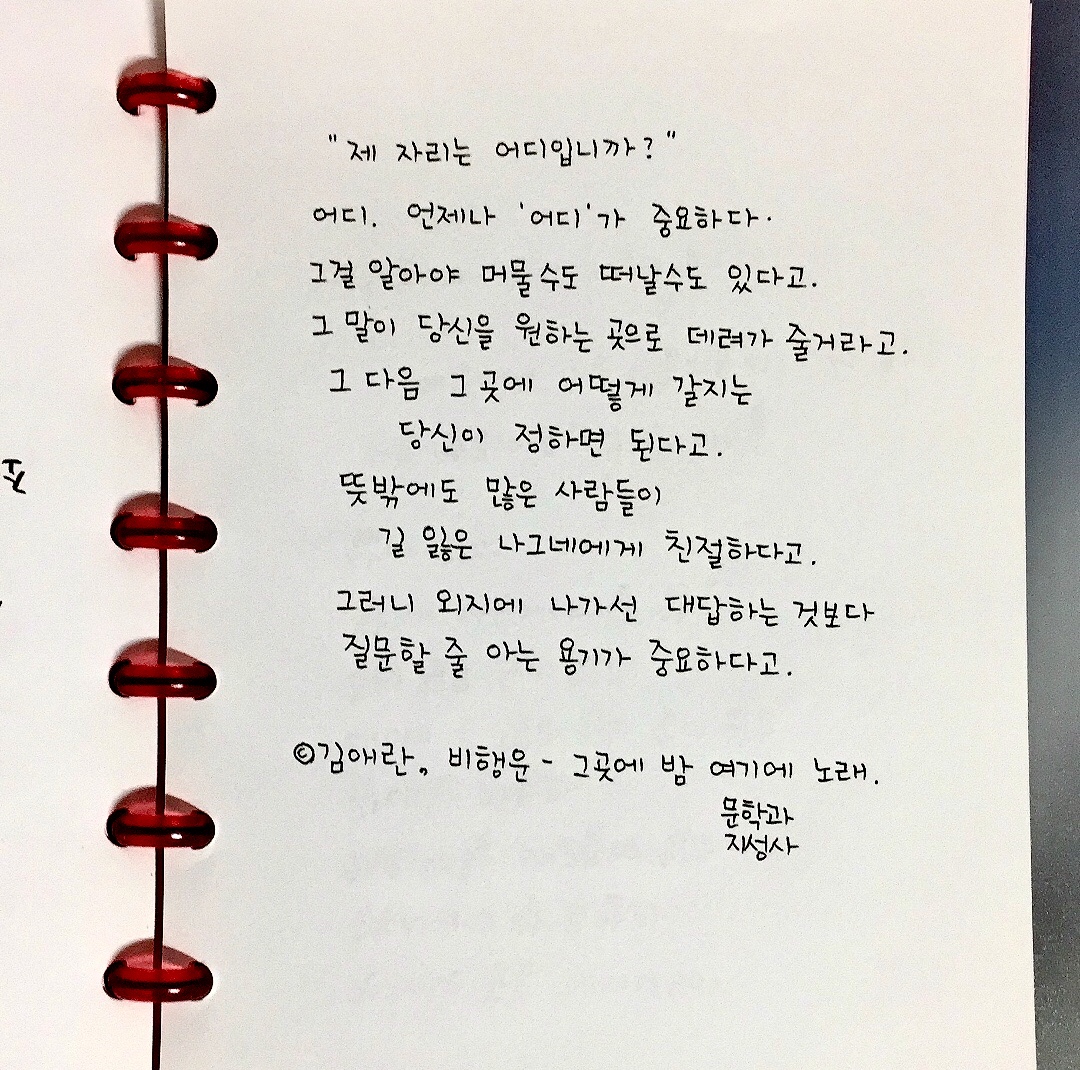 "제 자리는 어디입니까?"
어디. 언제나 '어디'가 중요하다.
그걸 알아야 머물수도 떠날수도 있다고.
그 말이 당신을 원하는 곳으로 데려가 줄거라고.
그 다음 그 곳에 어떻게 갈지는
당신이 정하면 된다고.
뜻밖에도 많은 사람들이
길 잃은 나그네에게 친절하다고.
그러니 외지에 나가선 대답하는 것보다
질문할 줄 아는 용기가 중요하다고.
©김애란, 비행운 - 그곳에 밤 여기에 노래.
문학과
지성사